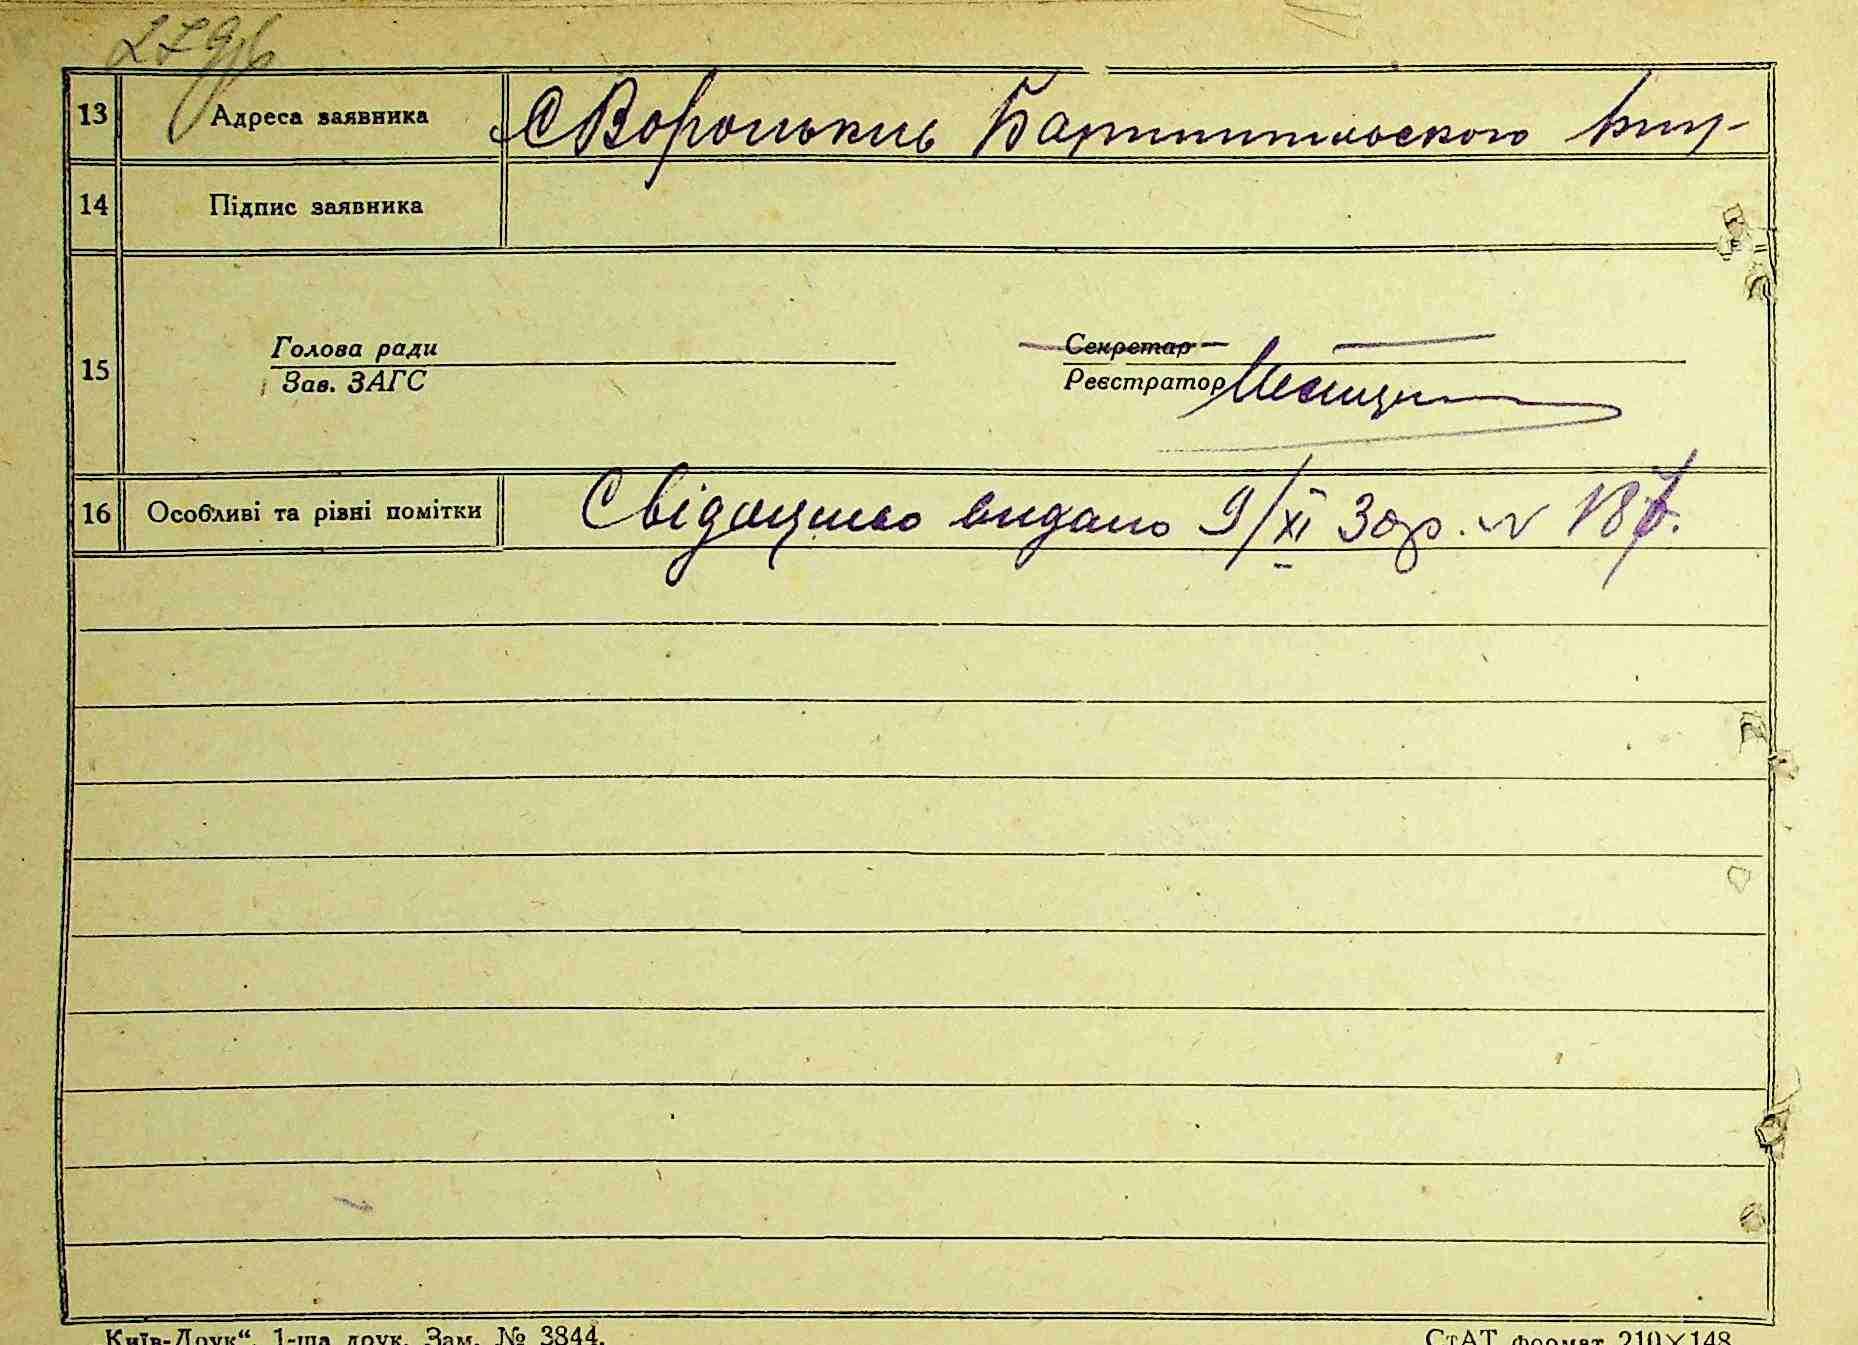 13 Адреса заявника с Вороньків Баришпільського
14 Підпис заявника
Голова ради Секретар
15
Зав. ЗАГС Реєстратор
16 Особливі та різні помітки Свідоцтво видано 9/XI 30р. №
Київ-Друк“, 1-ша друк. Зам. № 3844.
СтАТ формат 210×148